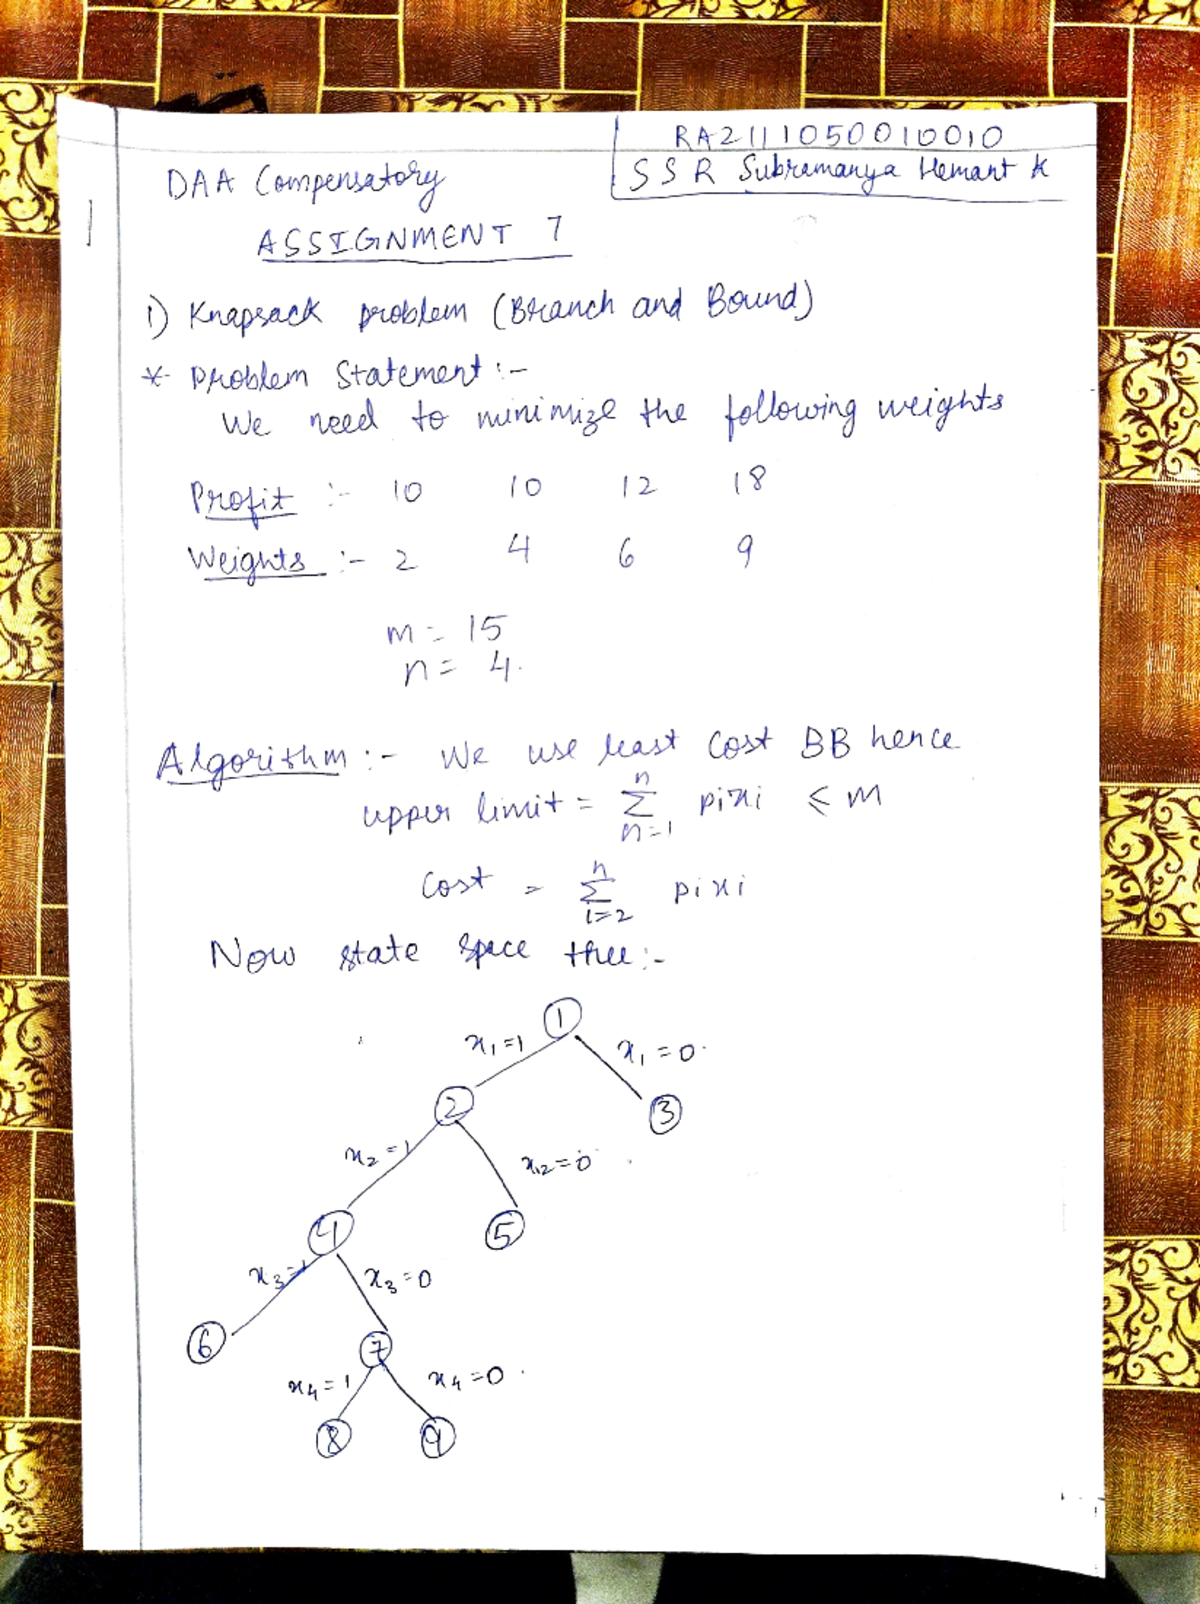 RA2111050010010
SSR Subramanya Hemant K
DAA Compensatory
1
ASSIGNMENT 7
1) Knapsack problem (Branch and Bound)
* Problem Statement :-
We need to minimize the following weights
Profit :- 10 10 12 18
Weights :- 2 4 6 9
m = 15
n = 4.
Algorithm :- We use least cost BB hence
upper limit = n Σ n=1 pixi ≤ m
Cost = n Σ i=2 pixi
Now state space tree :-
1
x1=1 x1=0
2 3
x2=1 x12=0
4 5
x3=1 x3=0
6 7
x4=1 x4=0
8 9